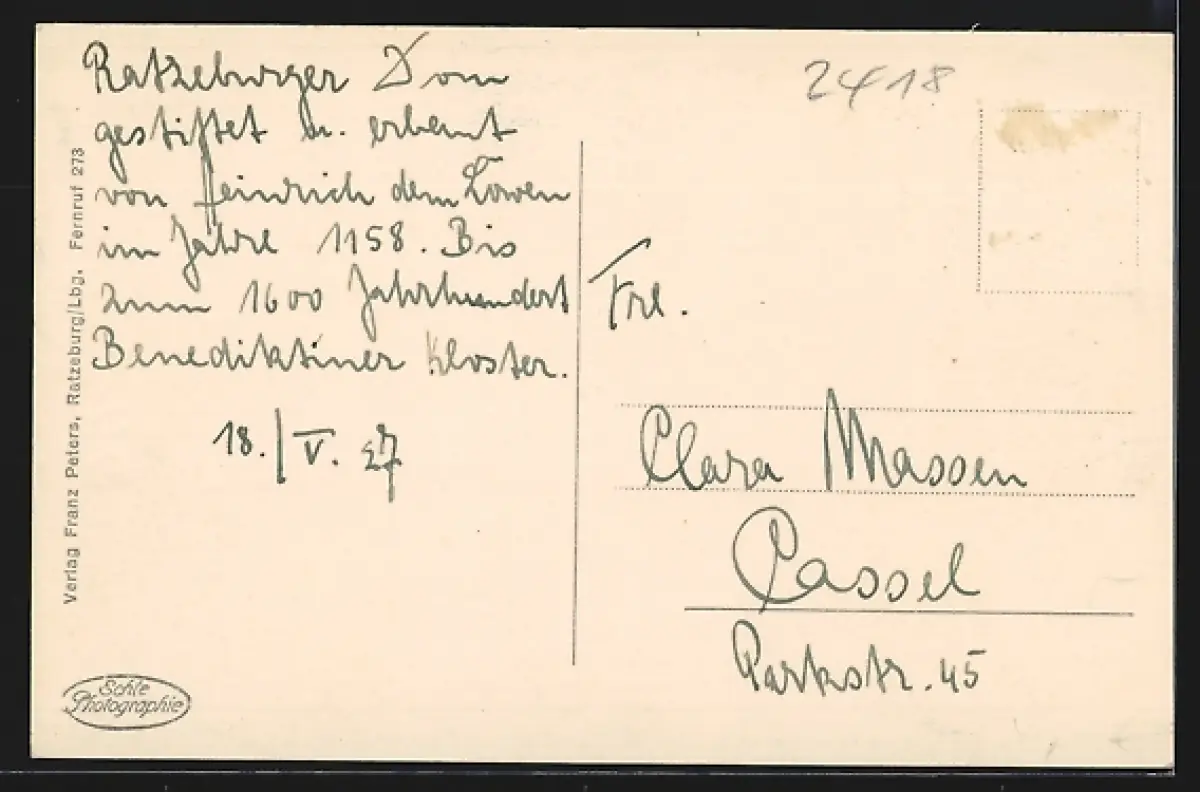 Ratzeburger Dom
gestiftet u. erbaut
von Heinrich dem Löwen
im Jahre 1158. Bis
zum 1600 Jahrhundert
Benediktiner Kloster.
18./V. 27
Verlag Franz Peters, Ratzeburg/Lbg. Fernruf 273
Echte
Photographie
2418
Frl.
Clara Massen
Cassel
Parkstr. 45